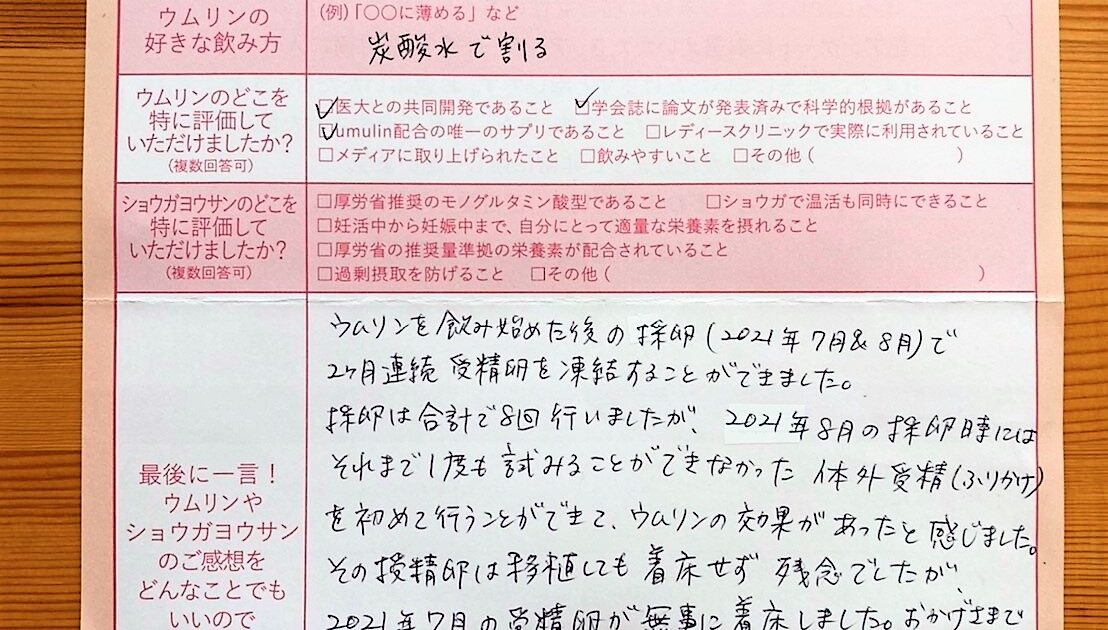 ウムリンの
好きな飲み方
(例)「〇〇に薄める」など
炭酸水で割る
ウムリンのどこを
特に評価して
いただけましたか?
(複数回答可)
☑医大との共同開発であること ☑学会誌に論文が発表済みで科学的根拠があること
☑umulin配合の唯一のサプリであること □レディースクリニックで実際に利用されていること
□メディアに取り上げられたこと □飲みやすいこと □その他( )
ショウガヨウサンのどこを
特に評価して
いただけましたか?
(複数回答可)
□厚労省推奨のモノグルタミン酸型であること □ショウガで温活も同時にできること
□妊活中から妊娠中まで、自分にとって適量な栄養素を摂れること
□厚労省の推奨量準拠の栄養素が配合されていること
□過剰摂取を防げること □その他( )
最後に一言!
ウムリンや
ショウガヨウサン
のご感想を
どんなことでも
いいので
ウムリンを飲み始めた後の採卵(2021年7月&8月)で
2ヶ月連続受精卵を凍結することができました。
採卵は合計で8回行いましたが、2021年8月の採卵時には
それまで1度も試みることができなかった体外受精(ふりかけ)
を初めて行うことができて、ウムリンの効果があったと感じました。
その授精卵は移植しても着床せず残念でしたが、
2021年7月の受精卵が無事に着床しました。おかげさまで